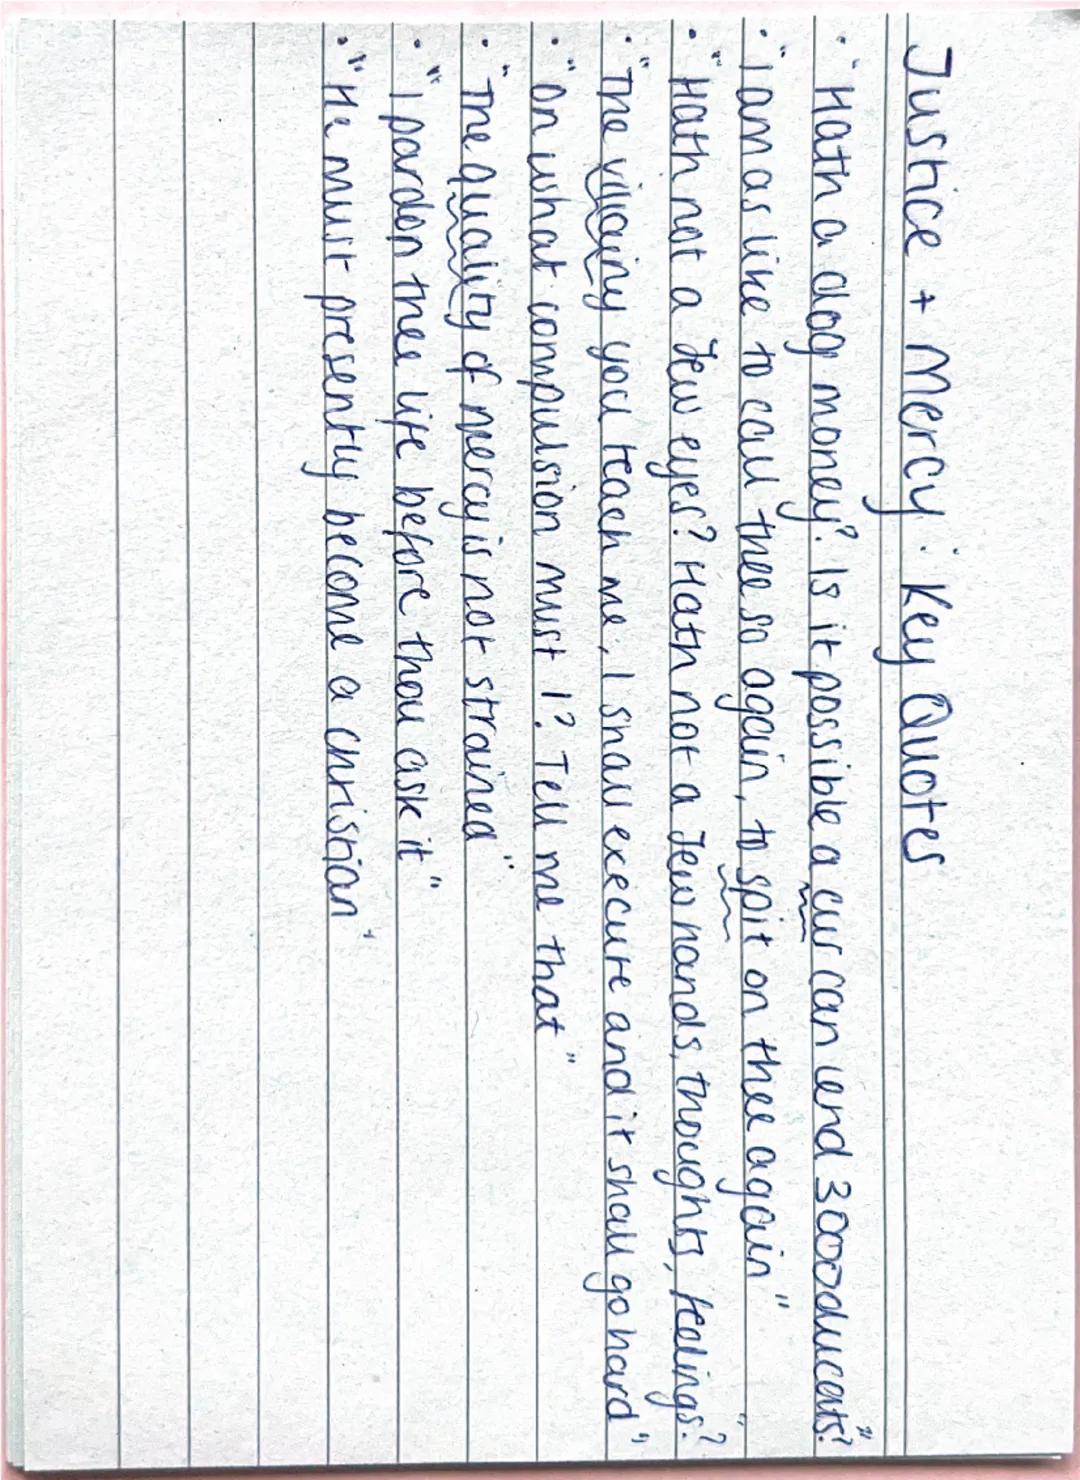 Justice + Mercy: Key Quotes
• "Hath a dog money? Is it possible a cur can lend 3000 ducats?"
• "I am as like to call thee so again, to spit on thee again"
• "Hath not a Jew eyes? Hath not a Jew hands, thoughts, feelings?"
• "The villainy you teach me, I shall execute and it shall go hard"
• "On what compulsion must I? Tell me that"
• "The quality of mercy is not strained"
• "I pardon thee life before thou ask it"
• "He must presently become a christian"